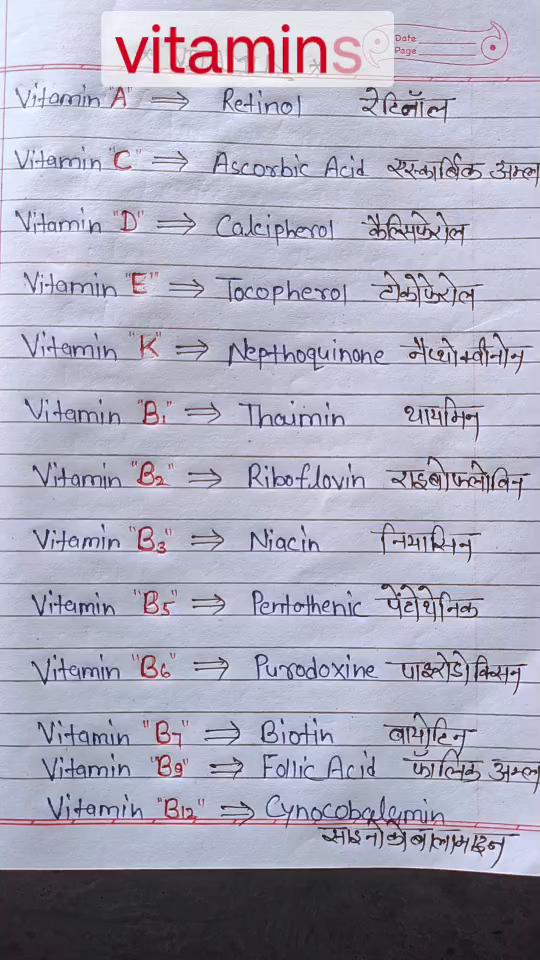 vitamins
Date
Page
Vitamin "A" ⇒ Retinol रेटिनॉल
Vitamin "C" ⇒ Ascorbic Acid एस्कार्बिक अम्ल
Vitamin "D" ⇒ Calcipherol कैल्सिफेरोल
Vitamin "E" ⇒ Tocopherol टोकोफेरोल
Vitamin "K" ⇒ Nepthoquinone नैप्थोक्वीनोन
Vitamin "B₁" ⇒ Thaimin थायमिन
Vitamin "B₂" ⇒ Riboflovin राइबोफ्लोविन
Vitamin "B₃" ⇒ Niacin नियासिन
Vitamin "B₅" ⇒ Pentothenic पेंटोथेनिक
Vitamin "B₆" ⇒ Purodoxine पाइरोडोक्सिन
Vitamin "B₇" ⇒ Biotin बायोटिन
Vitamin "B₉" ⇒ Follic Acid फालिक अम्ल
Vitamin "B₁₂" ⇒ Cynocobalemin
साइनोकोबालामाइन